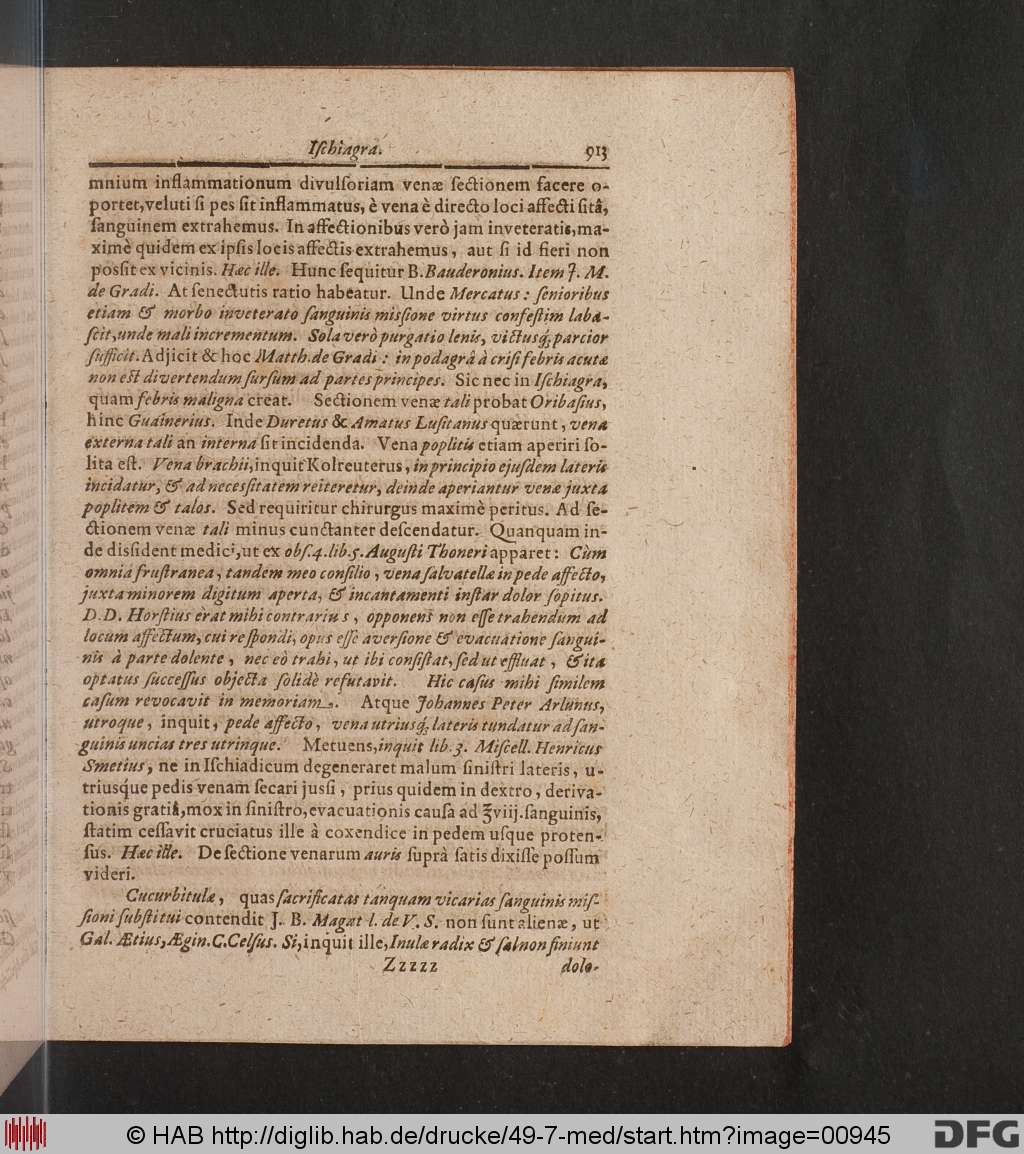 Iſchiagra. 913
mnium inflammationum divulſoriam venæ ſectionem facere o-
portet, veluti ſi pes ſit inflammatus, è vena è directo loci affecti ſitâ,
ſanguinem extrahemus. In affectionibus verò jam inveteratis, ma-
ximè quidem ex ipſis locis affectis extrahemus, aut ſi id fieri non
poſſit ex vicinis. Hæc ille. Hunc ſequitur B. Bauderonius. Item J. M.
de Gradi. At ſenectutis ratio habeatur. Unde Mercatus: ſenioribus
etiam & morbo inveterato ſanguinis miſſione virtus confeſtim laba-
ſcit, unde mali incrementum. Sola verò purgatio lenis, victusq́; parcior
ſufficit. Adjicit & hoc Matth. de Gradi: in podagrâ à criſi febris acutæ
non eſt divertendum ſurſum ad partes principes. Sic nec in Iſchiagra,
quam febris maligna creat. Sectionem venæ tali probat Oribaſius,
hinc Guainerius. Inde Duretus & Amatus Luſitanus quærunt, vena
externa tali an interna ſit incidenda. Vena poplitis etiam aperiri ſo-
lita eſt. Vena brachii, inquit Kolreuterus, in principio ejuſdem lateris
incidatur, & ad neceſſitatem reiteretur, deinde aperiantur venæ juxta
poplitem & talos. Sed requiritur chirurgus maximè peritus. Ad ſe-
ctionem venæ tali minus cunctanter deſcendatur. Quanquam in-
de diſſident medici, ut ex obſ. 4. lib. 5. Auguſti Thoneri apparet: Cùm
omnia fruſtranea, tandem meo conſilio, vena ſalvatella in pede affecto,
juxta minorem digitum aperta, & incantamenti inſtar dolor ſopitus.
D. D. Horſtius erat mihi contrarius, opponens non eſſe trahendum ad
locum affectum, cui reſpondi, opus eſſe averſione & evacuatione ſangui-
nis à parte dolente, nec eò trahi, ut ibi conſiſtat, ſed ut effluat, & ita
optatus ſucceſſus objecta ſolidè refutavit. Hic caſus mihi ſimilem
caſum revocavit in memoriam. Atque Johannes Peter Arlunus,
utroque, inquit, pede affecto, vena utriusq́; lateris tundatur ad ſan-
guinis uncias tres utrinque. Metuens, inquit lib. 3. Miſcell. Henricus
Smetius, ne in Iſchiadicum degeneraret malum ſiniſtri lateris, u-
triusq́ue pedis venam ſecari juſſi, prius quidem in dextro, deriva-
tionis gratiâ, mox in ſiniſtro, evacuationis cauſa ad ℥viij. ſanguinis,
ſtatim ceſſavit cruciatus ille à coxendice in pedem uſque proten-
ſus. Hæc ille. De ſectione venarum auris ſuprà ſatis dixiſſe poſſum
videri.
Cucurbitulæ, quas ſacrificatas tanquam vicarias ſanguinis miſ-
ſioni ſubſtitui contendit J. B. Magat l. de V. S. non ſunt alienæ, ut
Gal. Ætius, Ægin. C. Celſus. Si, inquit ille, Inulæ radix & ſal non finiunt
Zzzzz dolo-
© HAB http://diglib.hab.de/drucke/49-7-med/start.htm?image=00945
DFG